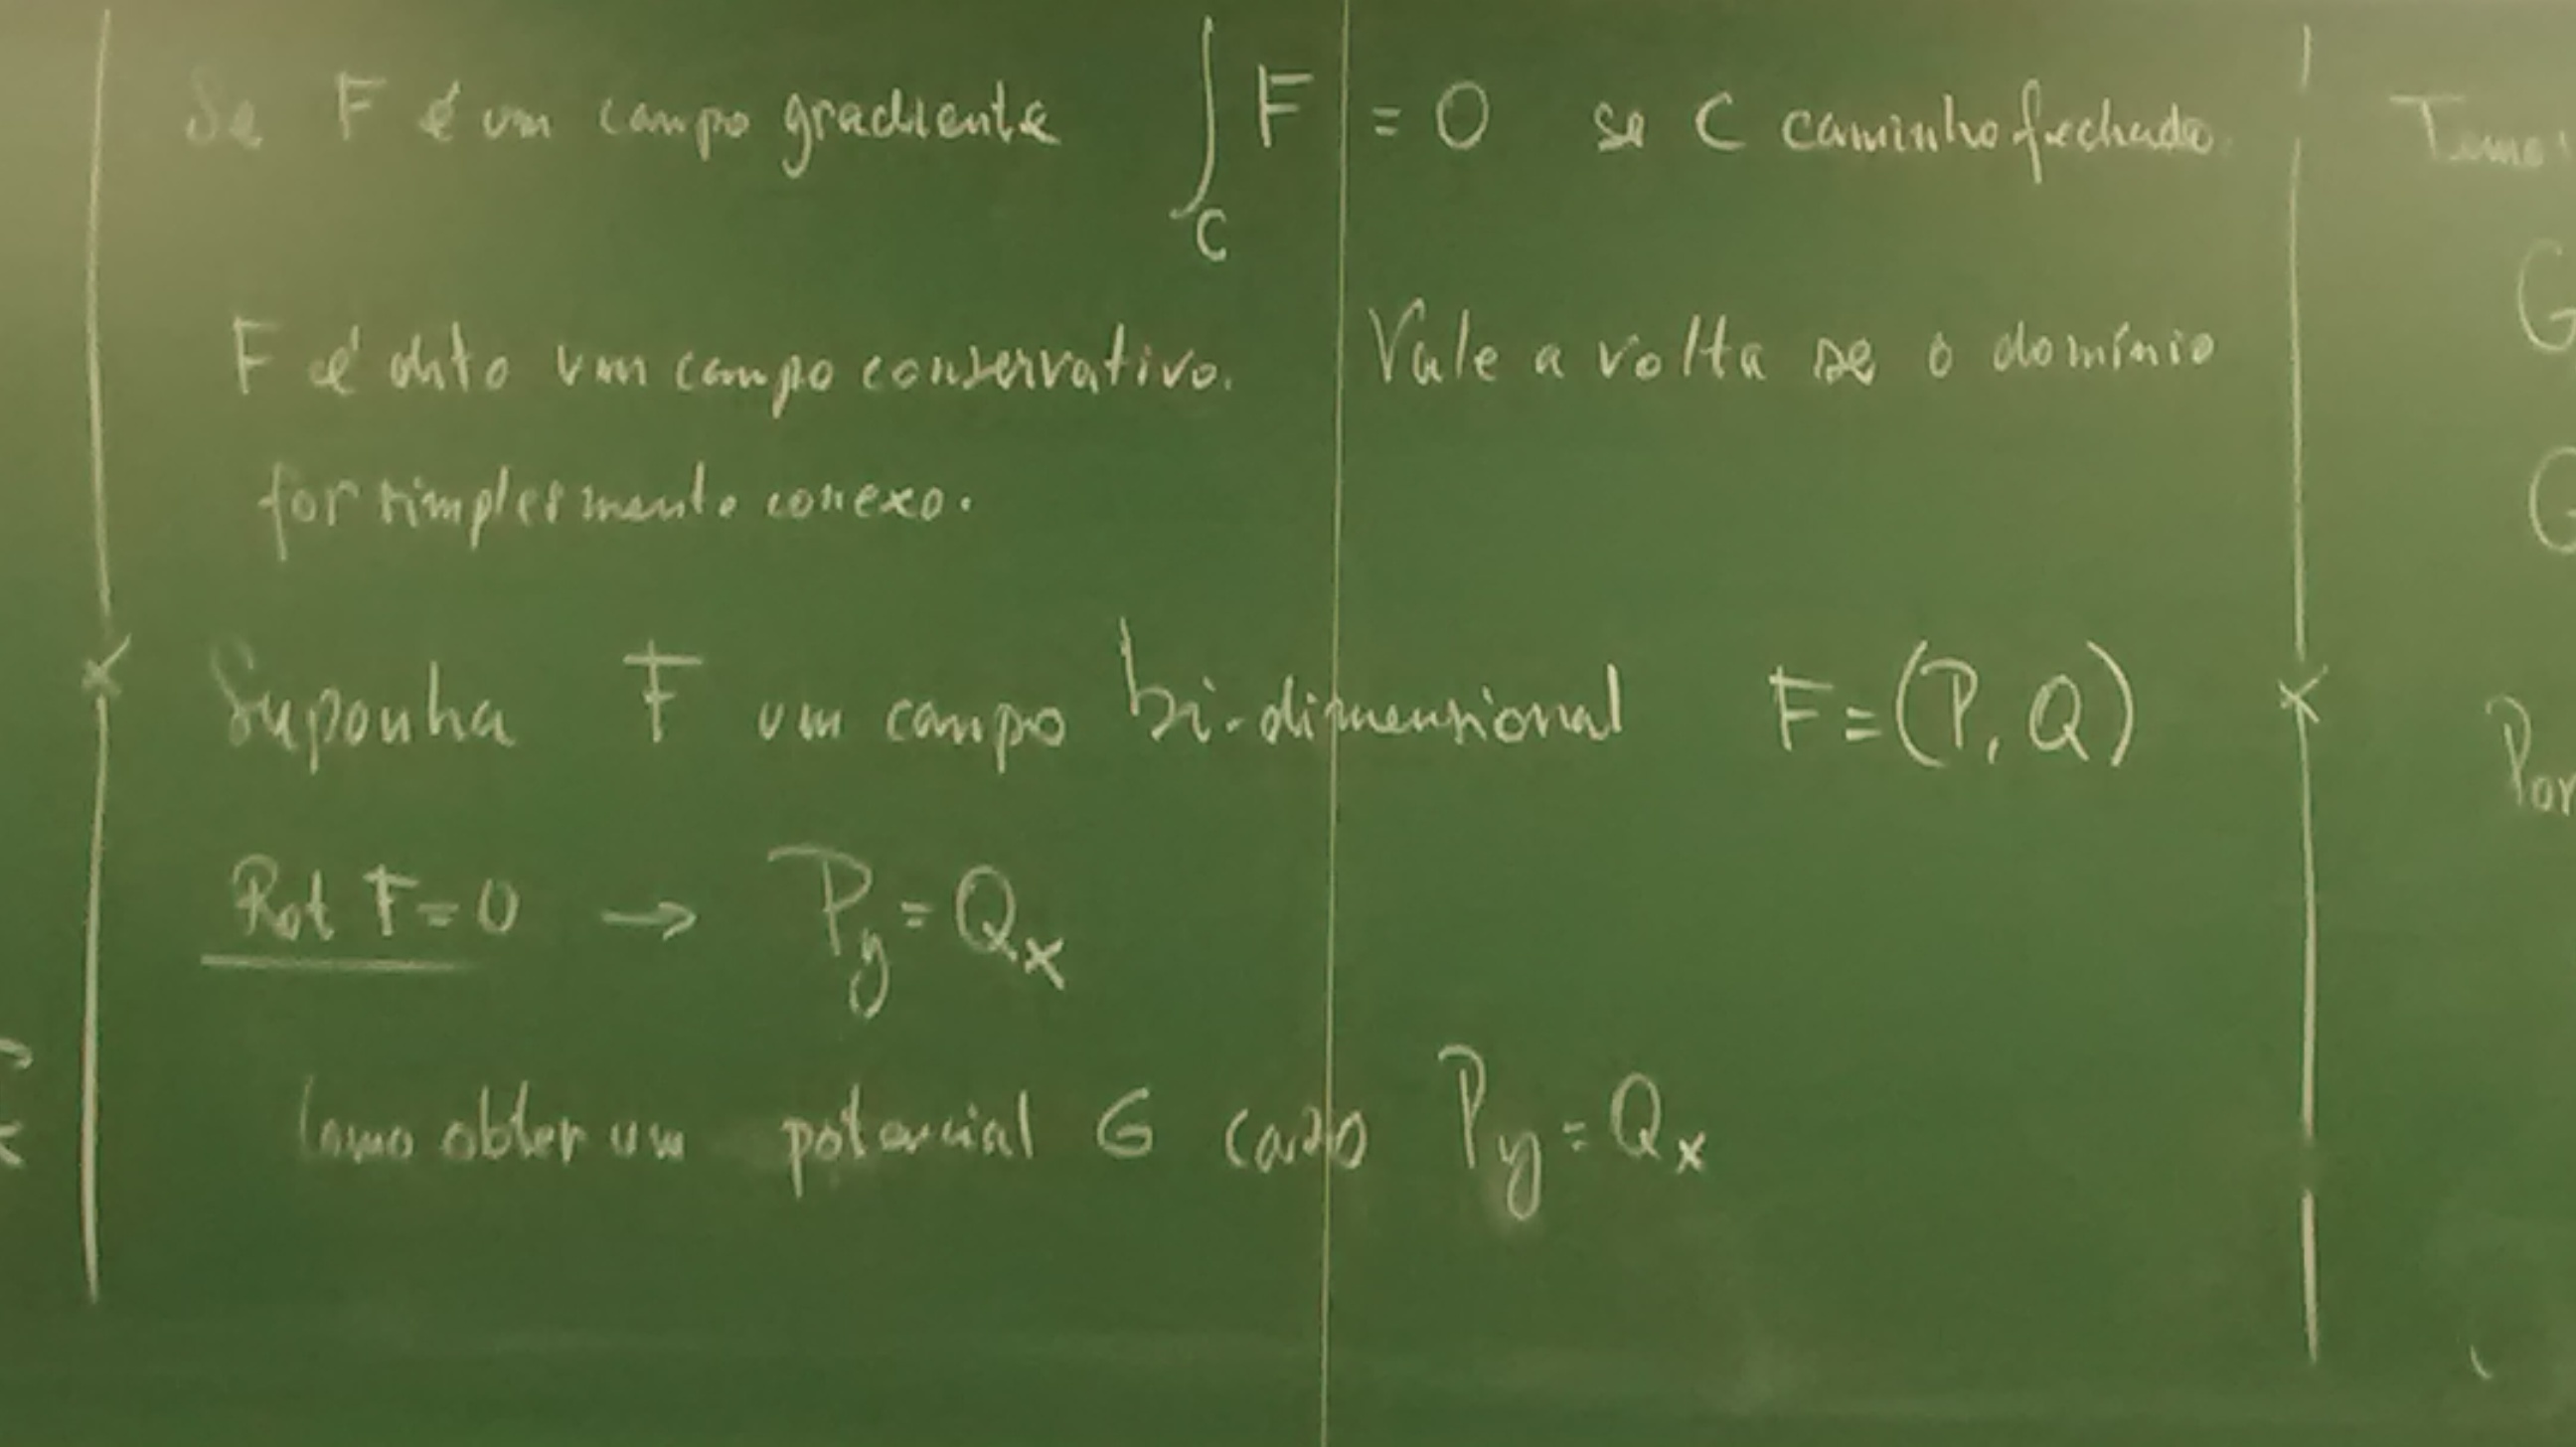 Se F é um campo gradiente ∫_C F = 0 se C caminho fechado.
F é dito um campo conservativo. Vale a volta se o domínio
for simplesmente conexo.
Suponha F um campo bi-dimensional F = (P, Q)
Rot F = 0 → P_y = Q_x
Como obter um potencial G caso P_y = Q_x
G
G